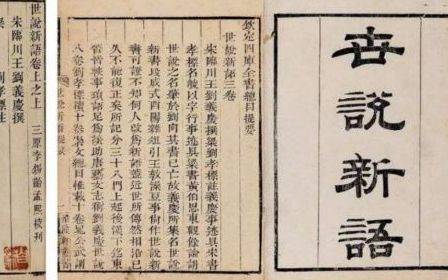 世說新語
欽定四庫全書總目提要
世說新語三卷
宋臨川王劉義慶撰梁劉孝標註義慶事迹具宋書
孝標名峻以字行事迹具梁書黃伯思東觀餘論謂
世說之名肇於劉向其書已亡故義慶所集名世說
新書段成式酉陽雜俎引王敦澡豆事尚作世說新
書可證不知何人改為新語蓋近世所傳然相沿已
久不能復正矣所記分三十八門上起後漢下迄東
晉皆軼事瑣語足為談助唐藝文志稱劉義慶世說
八卷劉孝標續十卷崇文總目惟載十卷晁公武謂
世說新語卷上之上
宋臨川王劉義慶撰
三原李錫齡孟熙校刊
劉孝標注